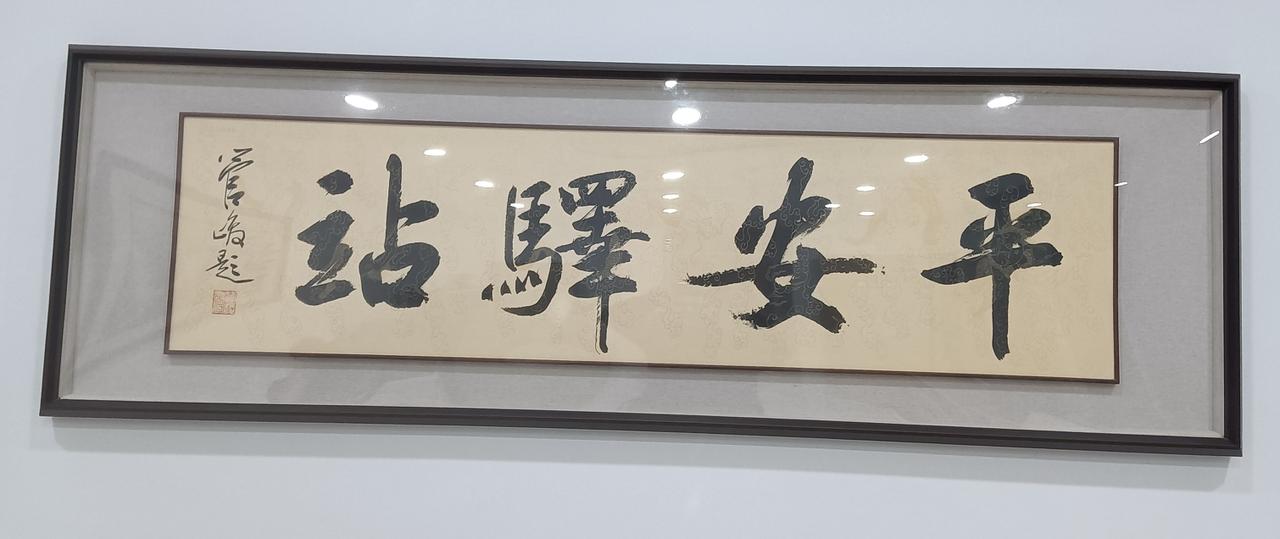 平安驛站
管峻題